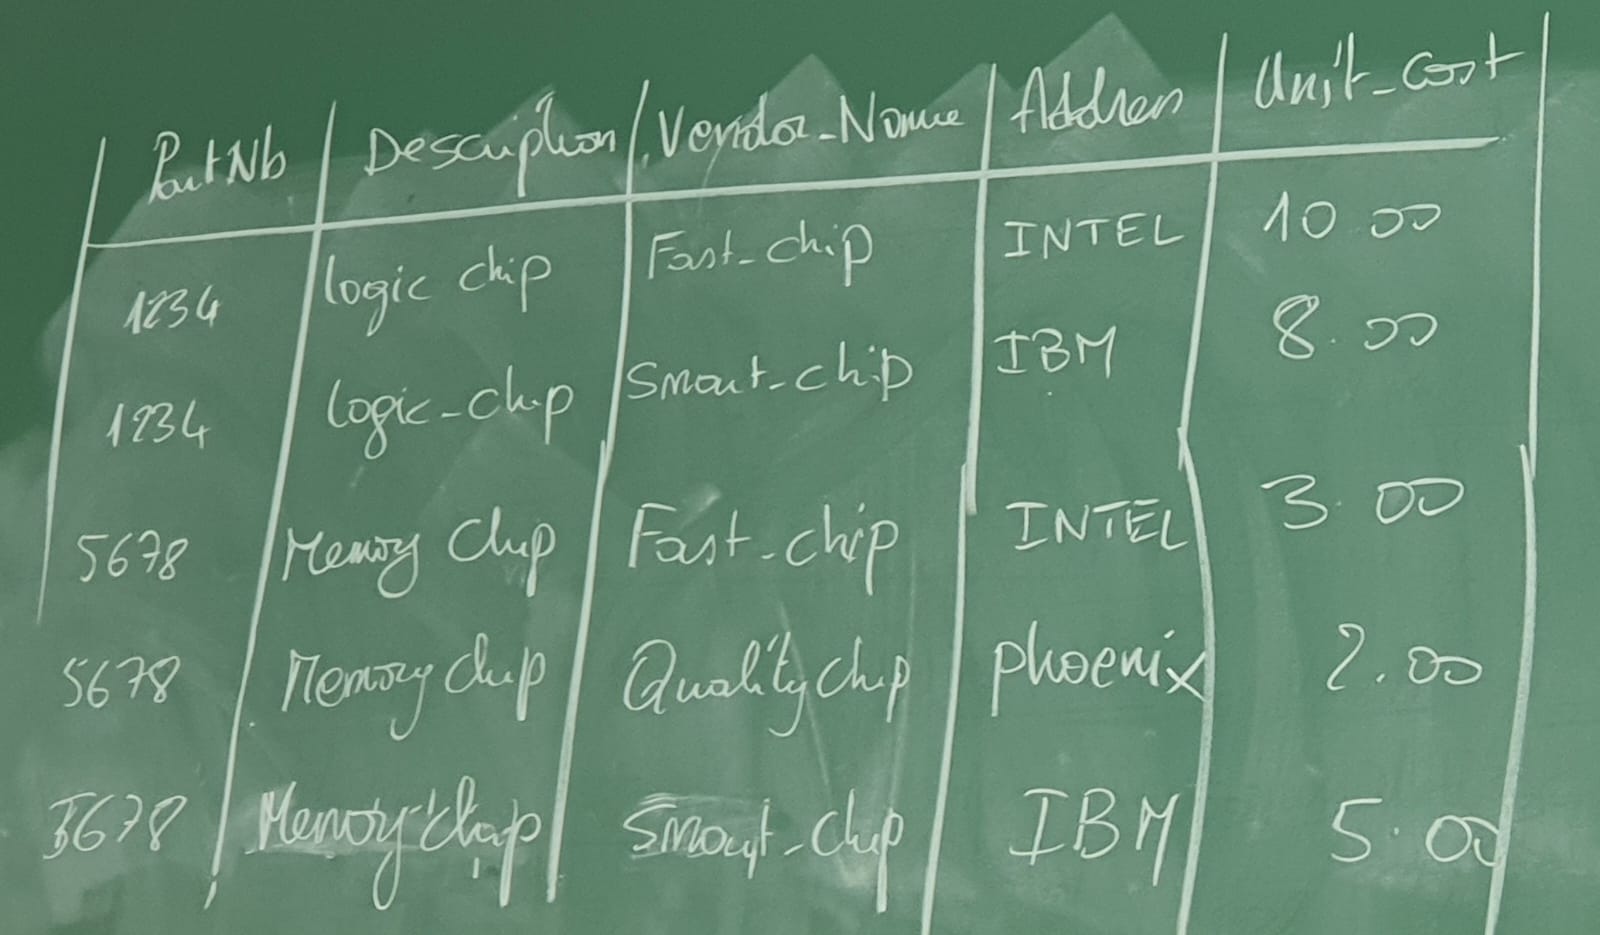 PartNb Description Vendor_Name Address Unit_Cost
1234 logic chip Fast_chip INTEL 10.00
1234 logic_chip Smart_chip IBM 8.00
5678 Memory Chip Fast_chip INTEL 3.00
5678 Memory chip Quality chip phoenix 2.00
5678 Memory chip Smart_chip IBM 5.00